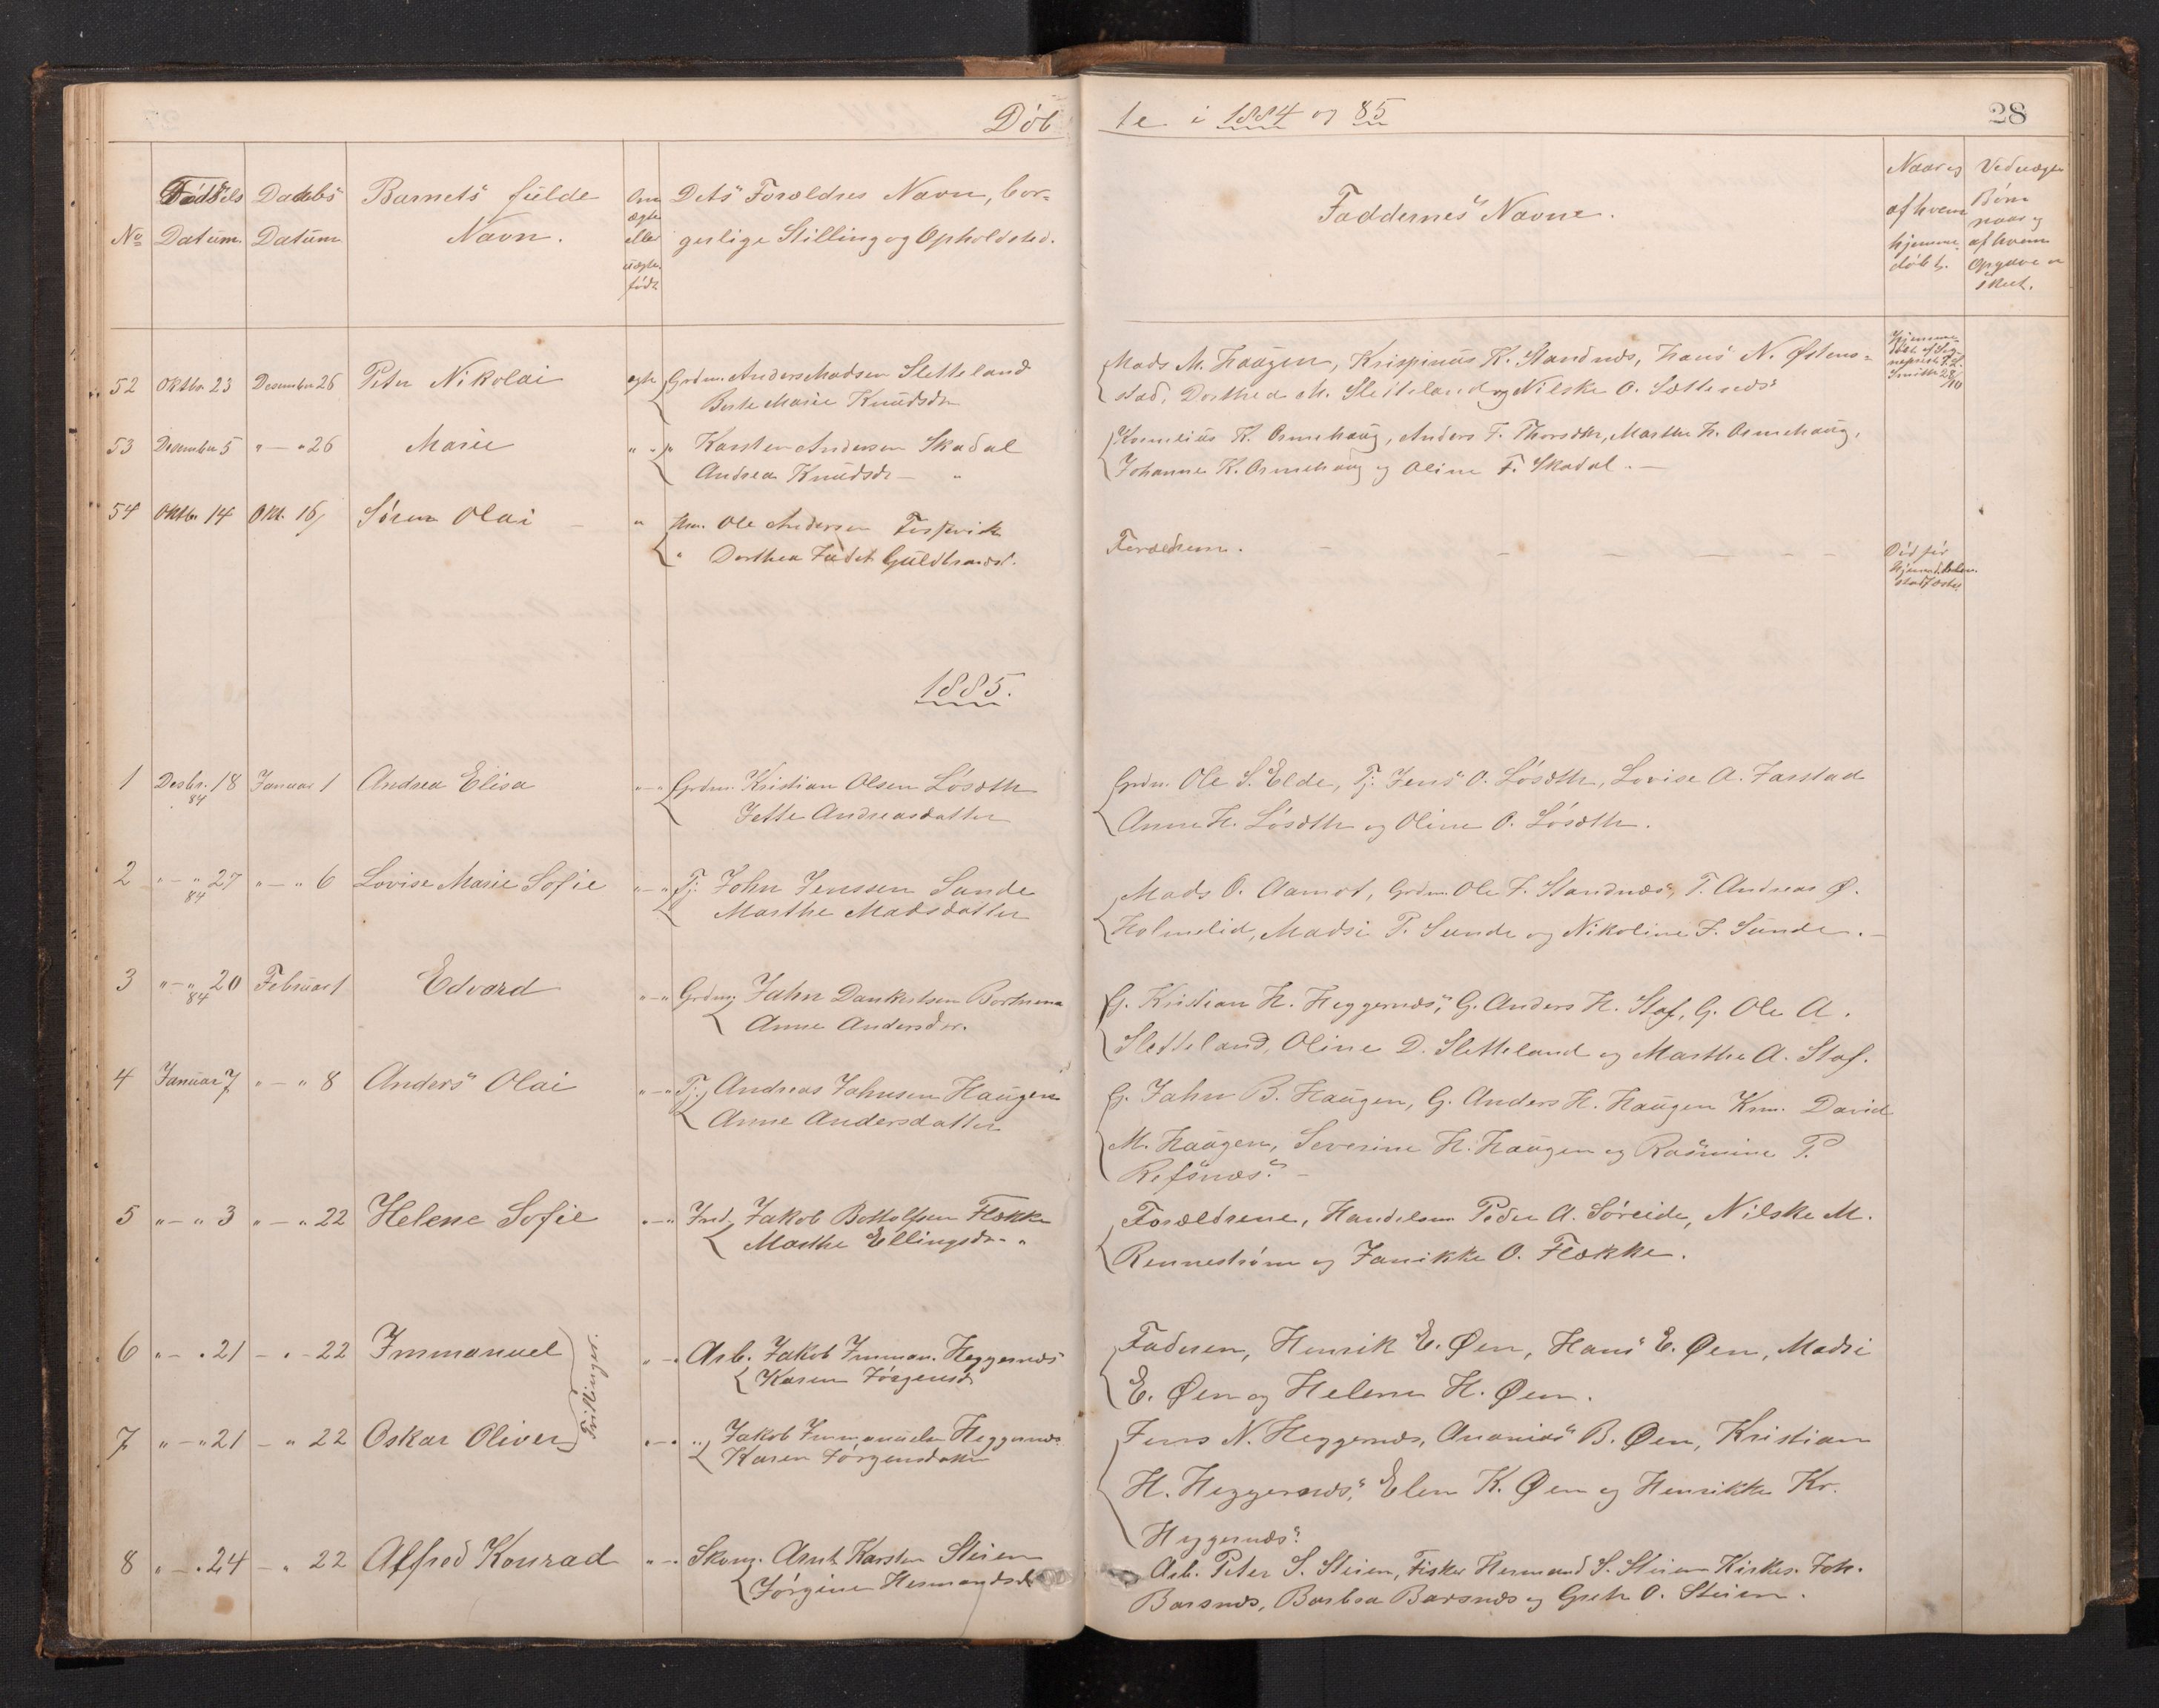 Døb
te i 1884 og 85
28
No
Fødsels
Datum
Daabs
Datum
Barnets fulde
Navn.
Om
ægte
eller
uægte
født
Dets Forældres Navn, bor-
gerlige Stilling og Opholdsted.
Faddernes Navne.
Naar og
af hvem
hjemme-
døbt.
Ved uægte
Børn
naar og
af hvem
Opgave er
skeet.
52 Oktbr 23 Desember 26 Peter Nikolai ægte Grdm. Anders Madsen Sletteland
Berte Marie Knudsdr
Mads M. Haugen, Krispinus K. Standnæs, Hans N. Østens-
stad, Dorthea M. Sletteland og Nilske O. Sættenæs
Hjemme-
døbt af
Smith 28/10
53 Desember 5 " — " 26 Marie " - " Karsten Andersen Skadal
Andrea Knudsdr — "
Kornelius K. Ormehaug, Anders F. Marthe K. Ormehaug,
Johanne K. Ormehaug og Oline F. Skadal. —
54 Oktbr 14 Okt. 16 Søren Olai — " Ole Andersen
" Dorthea Guldbrandsd.
Forældrene. — — — — — —
Død før
hjemmedaaben
stadfæstes
1885.
1 Desbr. 18 Januar 1 Andrea Elisa " — " Grdm. Kristian Olsen Løsæth
84
Jette Andreasdatter
Grdm. Ole S. Elde, Tj. Jens O. Løsæth, Lovise A. Farstad
Anne H. Løsæth og Oline O. Løsæth.
2 " — " 27 " — " 6 Lovise Marie Sofie " — " Tj. John Jenssen Sunde
84
Marthe Madsdatter
Mads O. Aamot, Grdm. Ole J. Standnæs, T. Andreas Ø.
Holmelid, Madsi P. Sunde og Nikoline J. Sunde. —
3 " — " 20 Februar 1 Edvard " — " Grdmg. Jahn Dankertsen
84
Anne Andersdr.
G. Kristian H. Heggernæs, G. Anders H. Staf, G. Ole A.
Sletteland, Oline D. Sletteland og Marthe A. Staf.
4 Januar 7 " — " 8 Anders Olai " — " Tj. Andreas Jahnsen Haugen
Anne Andersdatter
G. Jahn B. Haugen, G. Anders H. Haugen Krm. David
M. Haugen, Severine H. Haugen og Rasmine P.
Refsnæs. —
5 " — " 3 " — " 22 Helene Sofie " — " Ind. Jakob Bottolfsen Flække
Marthe Ellingsdr — "
Forældrene, Handelsm Peder A. Søreide, Nilske M.
Rennestrøm og Janikke O. Flække.
6 " — " 21 — " — 22 Immanuel " — " Arb. Jakob Imman. Heggernæs
Karen Jørgensd.
Faderen, Henrik E. Øen, Hans E. Øen, Madsi
E. Øen og Helene H. Øen.
Tvillinger.
7 " — " 21 — " 22 Oskar Oliver " — " " Jakob Immanuelsen Heggernæs
Karen Jørgensdatter
Jens N. Heggernæs, Ananias B. Øen, Kristian
H. Heggernæs, Elen K. Øen og Henrikke Kr.
Heggernæs.
8 " — " 24 — " 22 Alfred Konrad " — " Skom. Arnt Karsten Steien
Jørgine Hermandsd.
Arb. Peter S. Steien, Fisker Hermand S. Steien Kirkes. Joh.
Barsnæs, Barbra Barsnæs og Grete O. Steien.